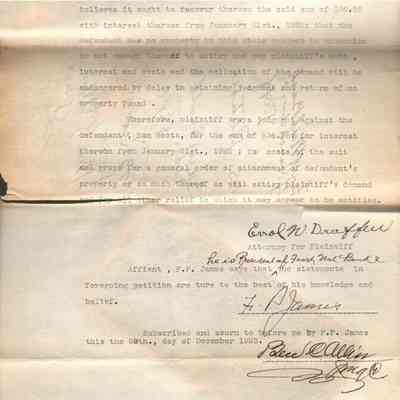 believes it ought to recover thereon the said sum of
with interest thereon from January 21st.,
defendant has no property in this state subject to execution
or not enough thereof to satisfy said plaintiff's debt,
interest and costs and the collection of the demand will be
endangered by delay in obtaining judgment and return of no
property found.
Wherefore, plaintiff prays judgment against the
defendant, Dan Scott, for the sum of for interest
thereon from January 21st., its costs of the suit
and prays for a general order of attachment of defendant's
property or so much thereof as will satisfy plaintiff's demand
for all other relief to which it may appear to be entitled.
Errol W. Draffen
Attorney for Plaintiff
he is President of First Nat Bank &
Affiant , F.P. James says that the statements in
foregoing petition are ture to the best of his knowledge and
belief.
F. P. James
Subscribed and sworn to before me by F.P. James
this the day of December
Ben C Allin